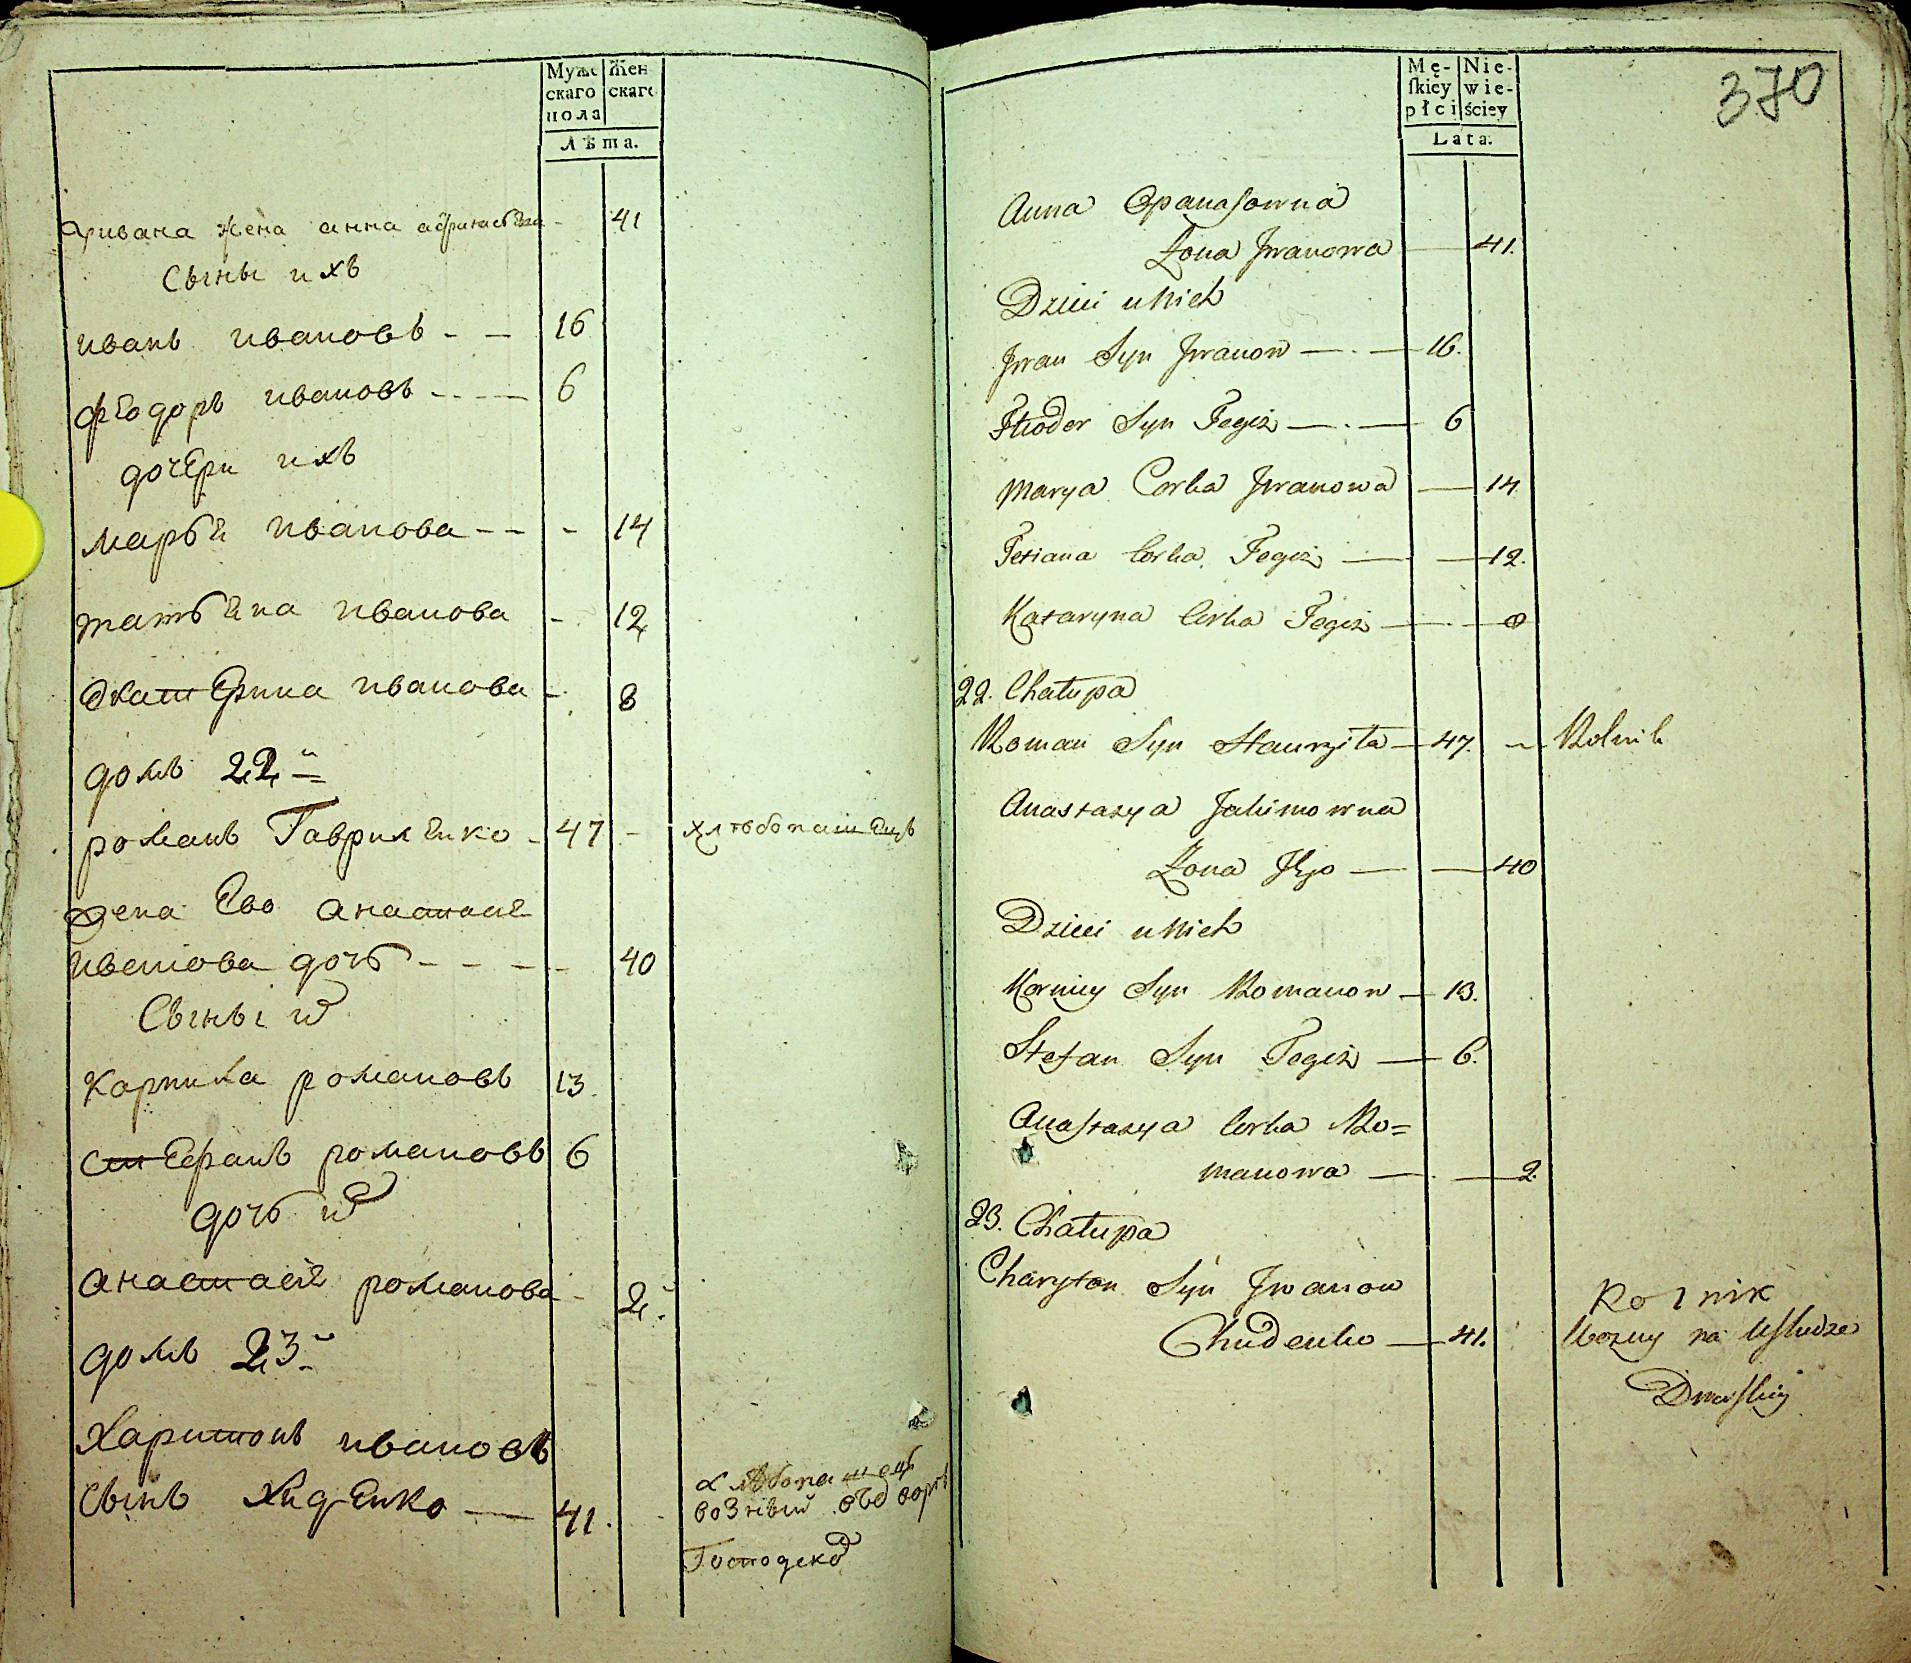 Мужескаго пола
Женскаго
Лѣта.
ивана жена анна - 41
Сыны ихъ
иванъ ивановъ - - 16
феодоръ ивановъ - - - 6
дочери ихъ
марья иванова - - - 14
татьяна иванова - 12
екатерина иванова - 8
домъ 22й
романъ Гавриленко - 47 - хлѣбопашецъ
жена Ево анастасия
дочь - - - - 40
Сыны их
романовъ 13.
стефанъ романовъ 6
дочь их
анастасия романова - 2.
домъ 23й
Харитонъ ивановъ
сынъ Худенко — 41.
хлѣбопашецъ
возный
370
Męskiey płci
Niewieściey
Lata.
Anna Opanasowna
Żona Jwanowa — 41.
Dzieci u Nich
Jwan Syn Jwanow — . — 16.
Fheodor Syn Tegiż — . — 6
Marya Corka Jwanowa — 14
Tetiana Corka Tegiż — — 12.
Kataryna Corka Tegiż — — 8
22. Chałupa
Roman Syn — 47. — Rolnik
Anastazya Jakimowna
Żona Jego — — 40
Dzieci u Nich
Korniey Syn Romanow — 13.
Stefan Syn Tegiż — 6.
Anastazya Corka Ro=
manowa — . — 2.
23. Chałupa
Charyton Syn Jwanow
Chudenko — 41.
Rolnik
Wozny na Usłudze
Dworskiey